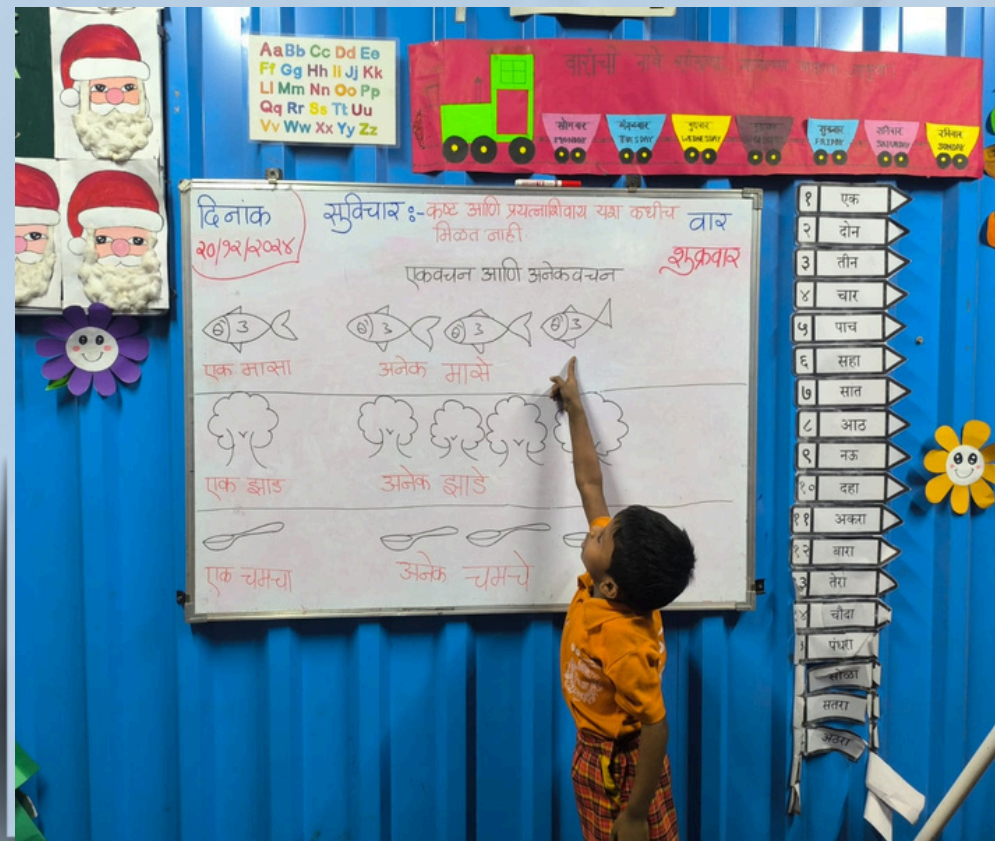 AaBb Cc Dd Ee
Ff Gg Hh Ii Jj Kk
Ll Mm Nn Oo Pp
Qq Rr Ss Tt Uu
Vv Ww Xx Yy Zz
वारांची नावे
सोमवार MONDAY
मंगळवार TUESDAY
बुधवार WEDNESDAY
शुक्रवार FRIDAY
शनिवार SATURDAY
रविवार SUNDAY
दिनांक
२०/१२/२०२४
सुविचार :- कष्ट आणि प्रयत्नाशिवाय यश कधीच
मिळत नाही.
वार
शुक्रवार
एकवचन आणि अनेकवचन
एक मासा अनेक मासे
एक झाड अनेक झाडे
एक चमचा अनेक चमचे
१ एक
२ दोन
३ तीन
४ चार
५ पाच
६ सहा
७ सात
८ आठ
९ नऊ
१० दहा
११ अकरा
१२ बारा
३ तेरा
४ चौदा
पंधरा
सोळा
सतरा
अठरा